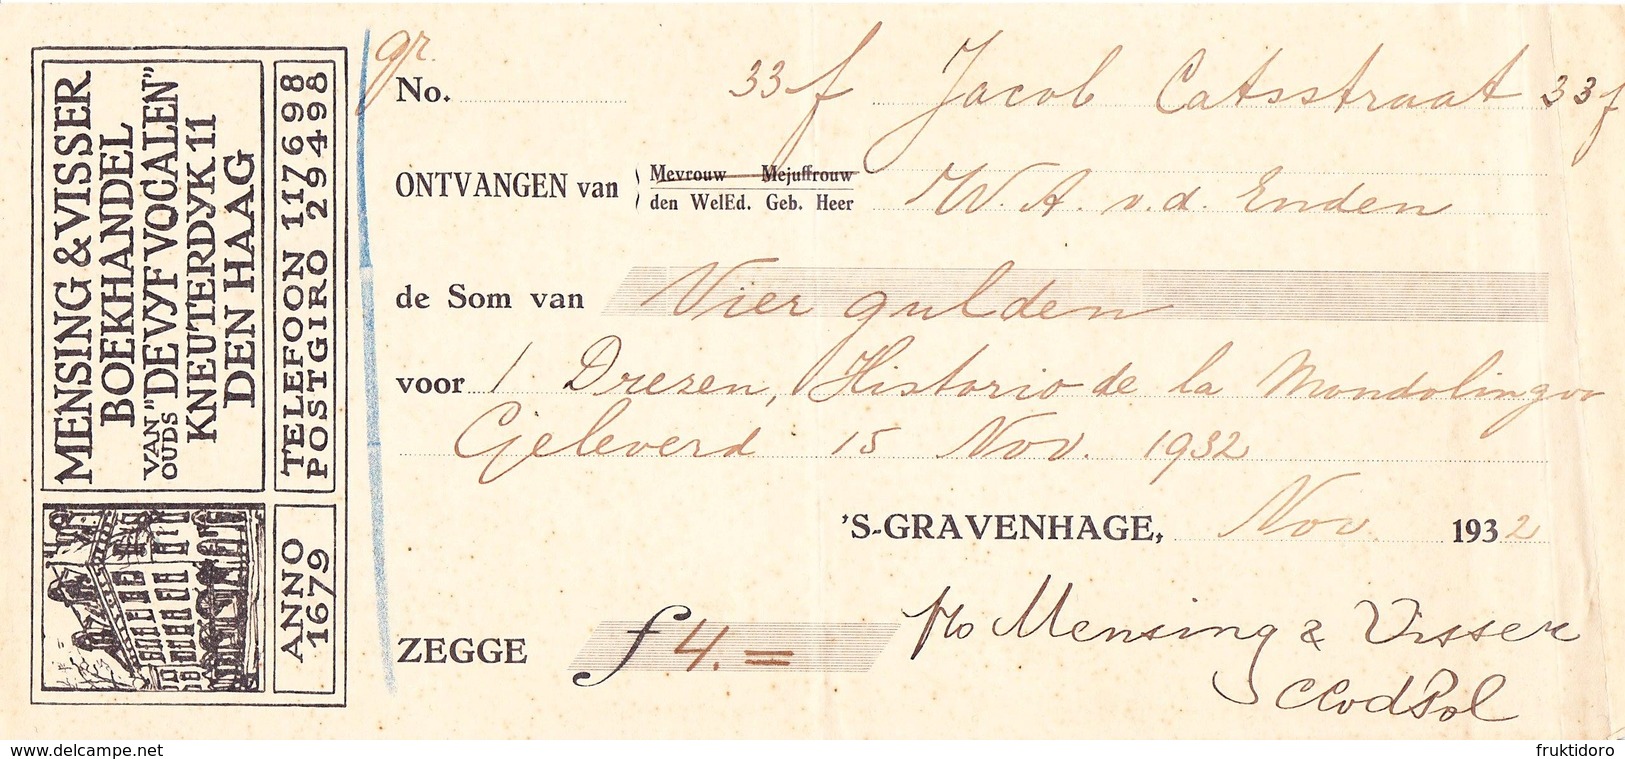 MENSING & VISSER
BOEKHANDEL
VAN OUDS "DE VYF VOCALEN"
KNEUTERDYK 11
DEN HAAG
TELEFOON 117698
POSTGIRO 29498
ANNO
1679
gr.
No. 33 f Jacob Catsstraat 33 f
ONTVANGEN van Mevrouw Mejuffrouw
den WelEd. Geb. Heer W. A. v. d. Enden
de Som van Vier gulden
voor 1 Drezen, Historio de la Mondolingvo
Geleverd 15 Nov. 1932
'S-GRAVENHAGE, Nov. 1932
ZEGGE f 4.=
Mensing & Visser
delcampe.net
fruktidoro